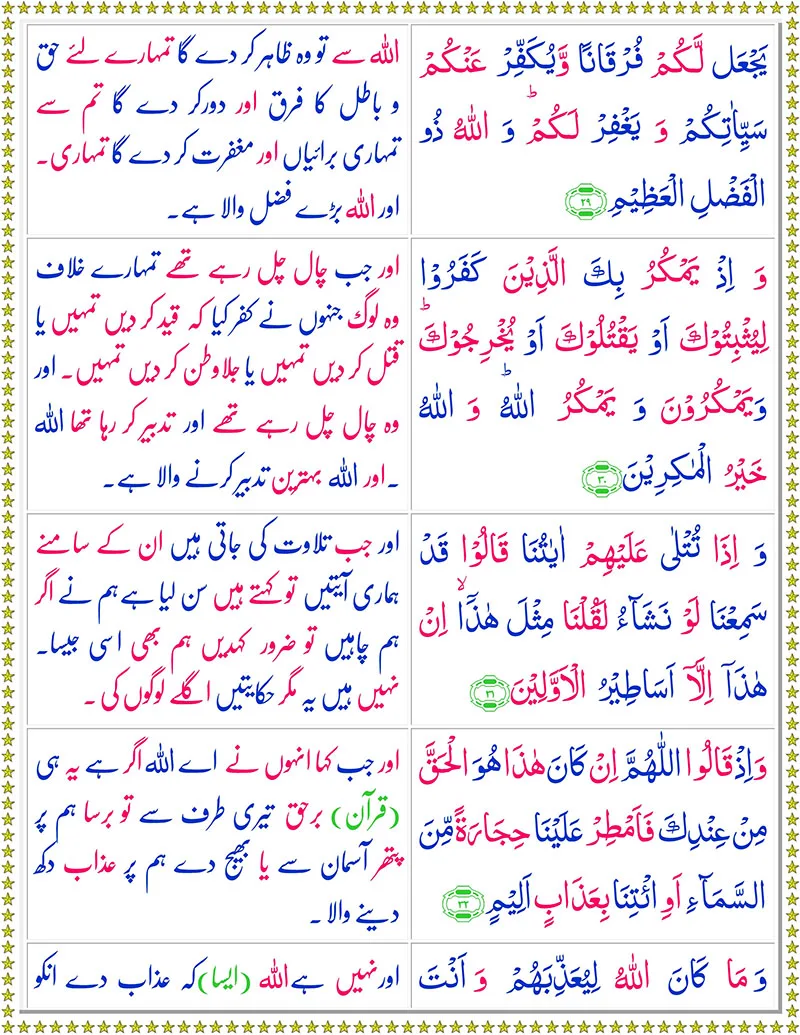 يَجْعَل لَّكُمْ فُرْقَانًا وَّيُكَفِّرْ عَنْكُمْ
سَيِّاٰتِكُمْ وَ يَغْفِرْ لَكُمْ ؕ وَ اللّٰهُ ذُو
الْفَضْلِ الْعَظِيْمِ ﴿۲۹﴾
الله سے تو وہ ظاہر کر دے گا تمہارے لئے حق
و باطل کا فرق اور دور کر دے گا تم سے
تمہاری برائیاں اور مغفرت کر دے گا تمہاری۔
اور الله بڑے فضل والا ہے۔
وَ اِذْ يَمْكُرُ بِكَ الَّذِيْنَ كَفَرُوْا
لِيُثْبِتُوْكَ اَوْ يَقْتُلُوْكَ اَوْ يُخْرِجُوْكَ ؕ
وَيَمْكُرُوْنَ وَ يَمْكُرُ اللّٰهُ ؕ وَ اللّٰهُ
خَيْرُ الْمٰكِرِيْنَ ﴿۳۰﴾
اور جب چال چل رہے تھے تمہارے خلاف
وہ لوگ جنہوں نے کفر کیا کہ قید کر دیں تمہیں یا
قتل کر دیں تمہیں یا جلاوطن کر دیں تمہیں۔ اور
وہ چال چل رہے تھے اور تدبیر کر رہا تھا الله
۔ اور الله بہترین تدبیر کرنے والا ہے۔
وَ اِذَا تُتْلٰى عَلَيْهِمْ اٰيٰتُنَا قَالُوْا قَدْ
سَمِعْنَا لَوْ نَشَآءُ لَقُلْنَا مِثْلَ هٰذَآ ۙ اِنْ
هٰذَآ اِلَّاۤ اَسَاطِيْرُ الْاَوَّلِيْنَ ﴿۳۱﴾
اور جب تلاوت کی جاتی ہیں ان کے سامنے
ہماری آیتیں تو کہتے ہیں سن لیا ہے ہم نے اگر
ہم چاہیں تو ضرور کہدیں ہم بھی اسی جیسا۔
نہیں ہیں یہ مگر حکایتیں اگلے لوگوں کی ۔
وَاِذْ قَالُوا اللّٰهُمَّ اِنْ كَانَ هٰذَا هُوَ الْحَقَّ
مِنْ عِنْدِكَ فَاَمْطِرْ عَلَيْنَا حِجَارَةً مِّنَ
السَّمَآءِ اَوِ ائْتِنَا بِعَذَابٍ اَلِيْمٍ ﴿۳۲﴾
اور جب کہا انہوں نے اے الله اگر ہے یہ ہی
(قرآن) برحق تیری طرف سے تو برسا ہم پر
پتھر آسمان سے یا بھیج دے ہم پر عذاب دکھ
دینے والا ۔
وَ مَا كَانَ اللّٰهُ لِيُعَذِّبَهُمْ وَ اَنْتَ
اور نہیں ہے الله (ایسا) کہ عذاب دے انکو